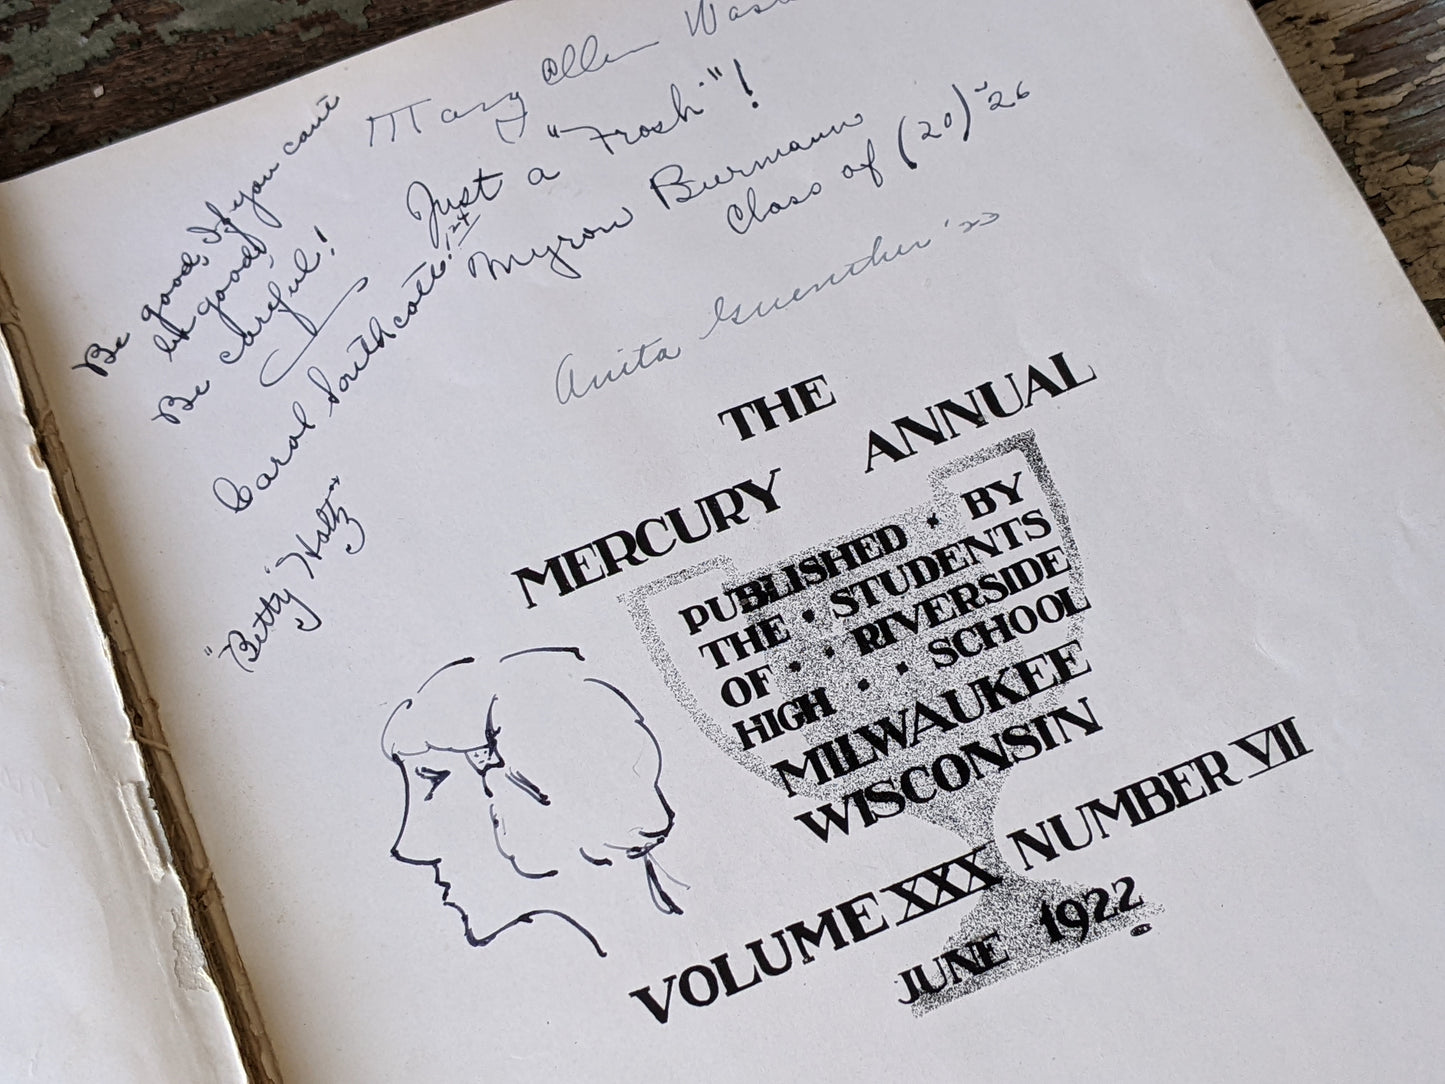 Mary Ellen
Just a "Frosh"!
Myron Burmann
Class of (20) '26
Be good, If you can't
be good,
Be careful!
Carol Southcott! '24
"Betty" Holtz
Anita Guenther '23
THE
MERCURY ANNUAL
PUBLISHED · BY
THE · STUDENTS
OF · · RIVERSIDE
HIGH · · SCHOOL
MILWAUKEE
WISCONSIN
VOLUME XXX NUMBER VII
JUNE 1922.